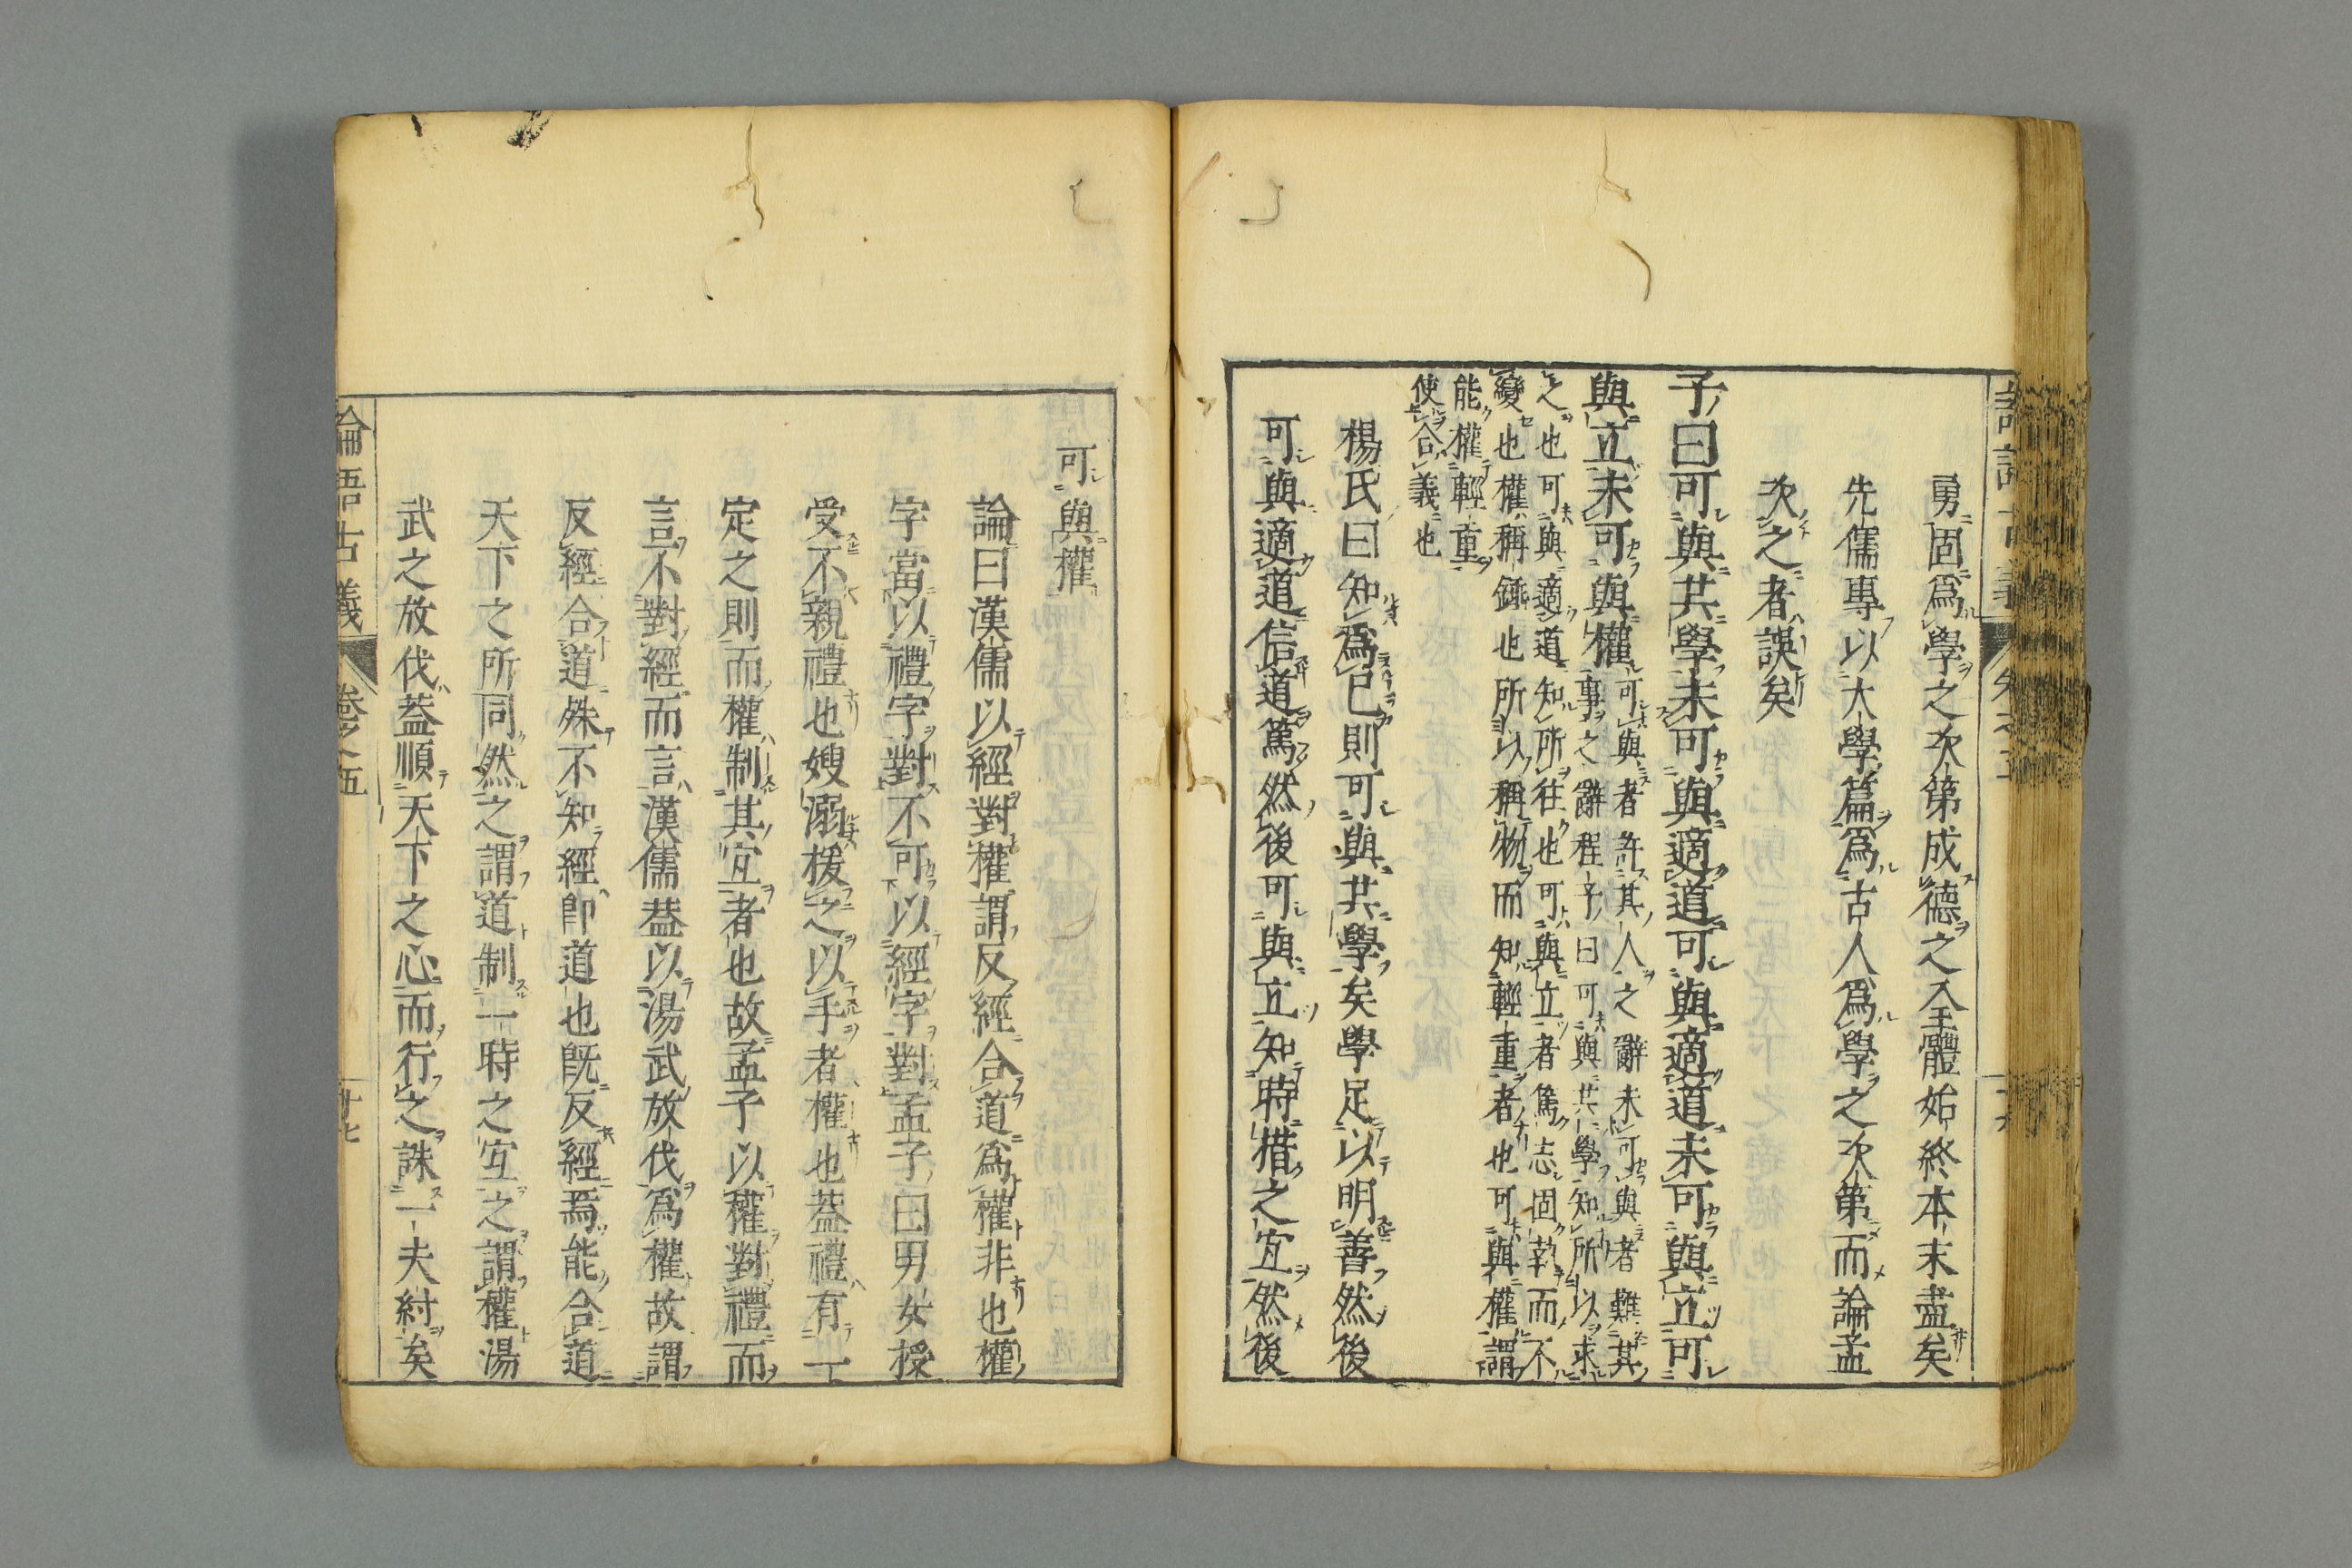 勇固爲學之次第成德之全體始終本末盡矣
先儒專以大學篇爲古人爲學之次第而論孟
次之者誤矣
子曰可與共學未可與適道可與適道未可與立可
與立未可與權
可與者許其人之辭未可與者難其
事之辭程子曰可與共學知所以求
之也可與適道知所往也可與立者篤志固執而不
變也權稱錘也所以稱物而知輕重者也可與權謂
能權輕重
使合義也
楊氏曰知爲己則可與共學矣學足以明善然後
可與適道信道篤然後可與立知時措之宜然後
可與權
論曰漢儒以經對權謂反經合道爲權非也權
字當以禮字對不可以經字對孟子曰男女授
受不親禮也嫂溺援之以手者權也葢禮有一
定之則而權制其宜者也故孟子以權對禮而
言不對經而言漢儒葢以湯武放伐爲權故謂
反經合道殊不知經卽道也旣反經焉能合道
天下之所同然之謂道制一時之宜之謂權湯
武之放伐葢順天下之心而行之誅一夫紂矣
論語古義 卷之五 廿七